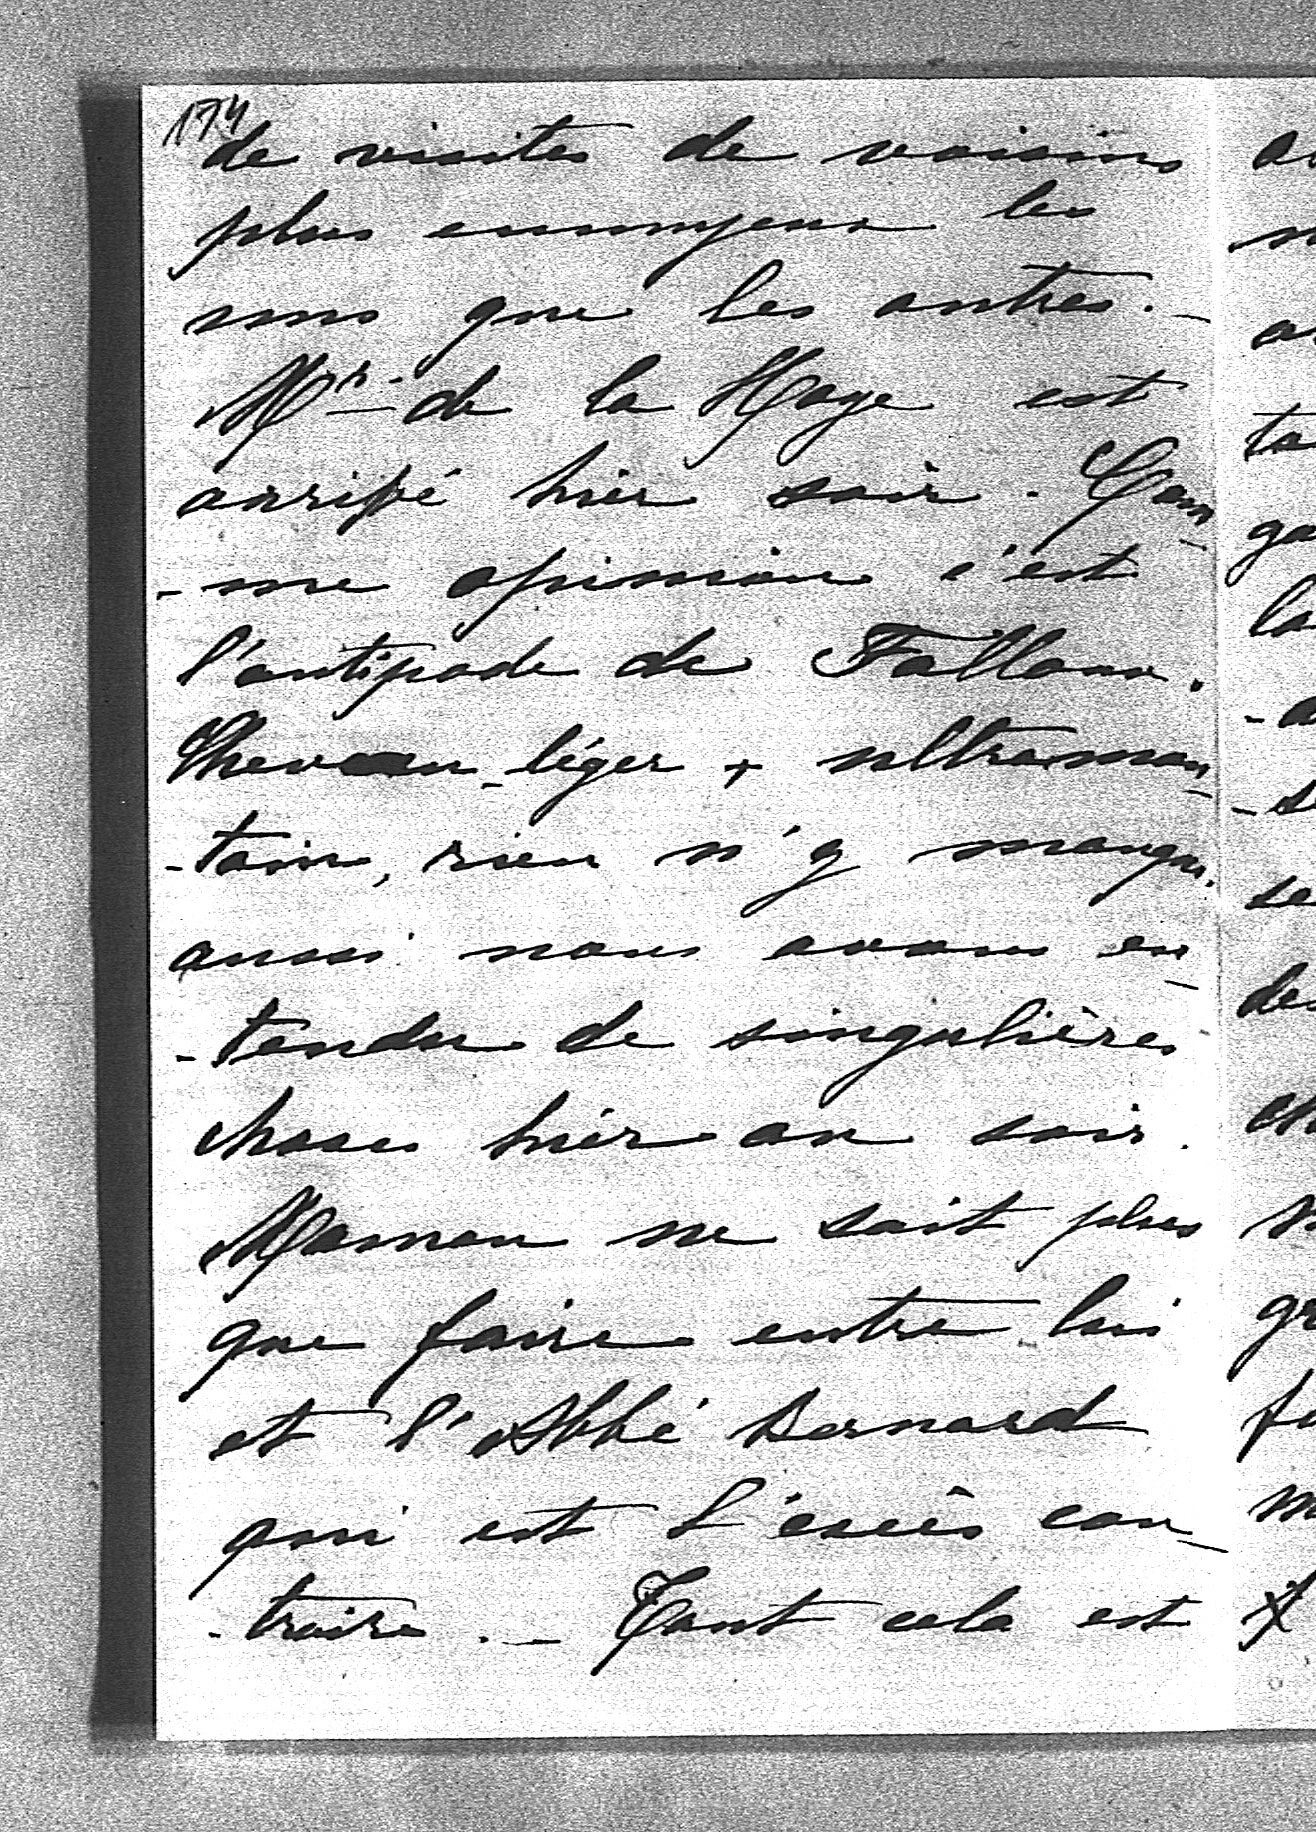 174
de visites de voisins
plus ennuyeux les
uns que les autres. _
Mr. de la Haye est
arrivé hier soir. Com_
-me opinion c'est
l'antipode de Falloux.
Chevau_léger + ultramon_
-tain, rien n'y manque.
aussi nous avons en_
-tendu de singulières
choses hier au soir.
Maman ne sait plus
que faire entre lui
et l'Abbé Bernard
qui est l'excès con_
-traire. _ Tout cela est